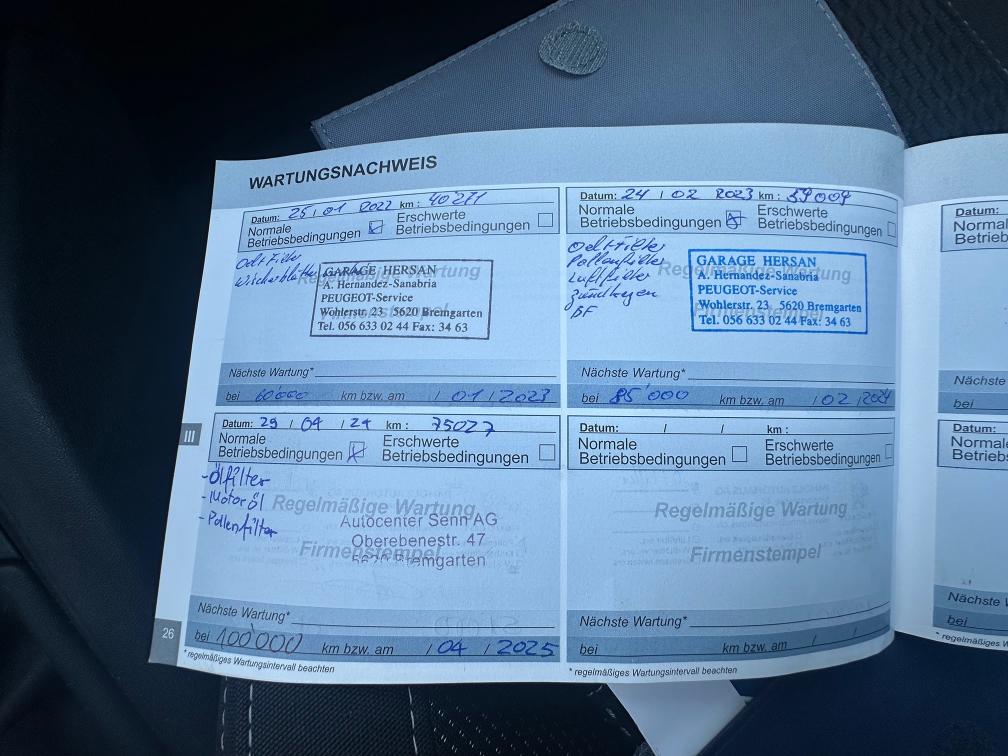 WARTUNGSNACHWEIS
Datum: 25 / 01 2022 km : 40271
Normale Betriebsbedingungen
Erschwerte Betriebsbedingungen
Oel+Filter
Wischerblätter
Regelmäßige Wartung
Firmenstempel
GARAGE HERSAN
A. Hernandez-Sanabria
PEUGEOT-Service
Wohlerstr. 23 5620 Bremgarten
Tel. 056 633 02 44 Fax: 34 63
Nächste Wartung*
bei 60'000 km bzw. am / 01 / 2023
Datum: 24 / 02 2023 km : 59009
Normale Betriebsbedingungen
Erschwerte Betriebsbedingungen
Oel+Filter
Pollenfilter
Luftfilter
Zündkerzen
BF
Regelmäßige Wartung
Firmenstempel
GARAGE HERSAN
A. Hernandez-Sanabria
PEUGEOT-Service
Wohlerstr. 23 5620 Bremgarten
Tel. 056 633 02 44 Fax: 34 63
Nächste Wartung*
bei 85'000 km bzw. am / 02 / 2024
III
Datum: 29 / 04 / 24 km : 75027
Normale Betriebsbedingungen
Erschwerte Betriebsbedingungen
- Ölfilter
- Motoröl
- Pollenfilter
Regelmäßige Wartung
Firmenstempel
Autocenter Senn AG
Oberebenestr. 47
5620 Bremgarten
Nächste Wartung*
bei 100'000 km bzw. am / 04 / 2025
* regelmäßiges Wartungsintervall beachten
26
Datum: / / km :
Normale Betriebsbedingungen
Erschwerte Betriebsbedingungen
Regelmäßige Wartung
Firmenstempel
Nächste Wartung*
bei km bzw. am / /
* regelmäßiges Wartungsintervall beachten
Datum:
Nächste
bei
Datum:
Nächste
bei